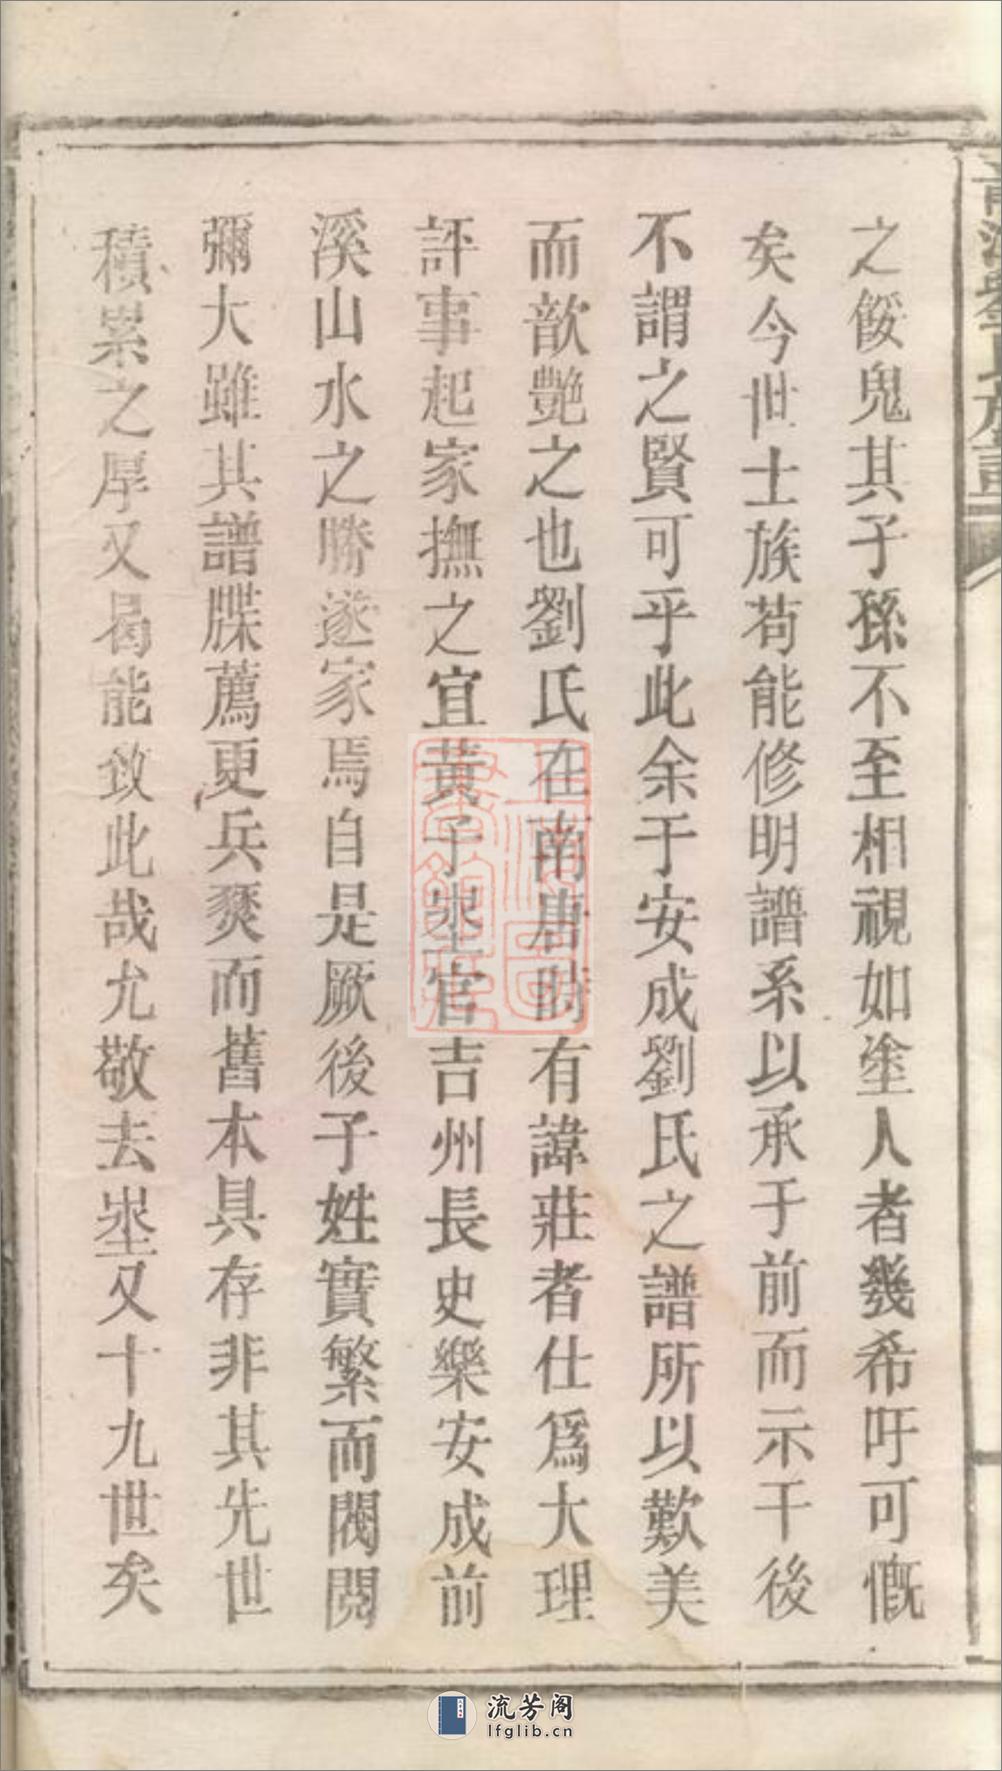 之餒鬼其子孫不至相視如塗人者幾希吁可慨
矣今世士族苟能修明譜系以承于前而示干後
不謂之賢可乎此余于安成劉氏之譜所以歎美
而歆艷之也劉氏在南唐時有諱莊者仕爲大理
評事起家撫之宜黃子埊官吉州長史樂安成前
溪山水之勝遂家焉自是厥後子姓實繁而閥閱
彌大雖其譜牒薦更兵燹而舊本具存非其先世
積累之厚又曷能致此哉允敬去埊又十九世矣
劉氏族譜
上海圖書館藏
流芳阁
lfglib.cn